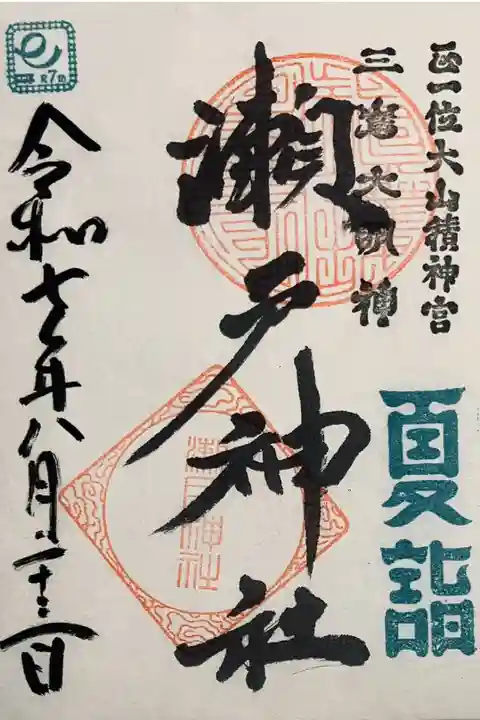 正一位大山積神宮
三島大明神
夏詣
瀬戸神社
瀬戸神社
令和七年八月二十三日
R7